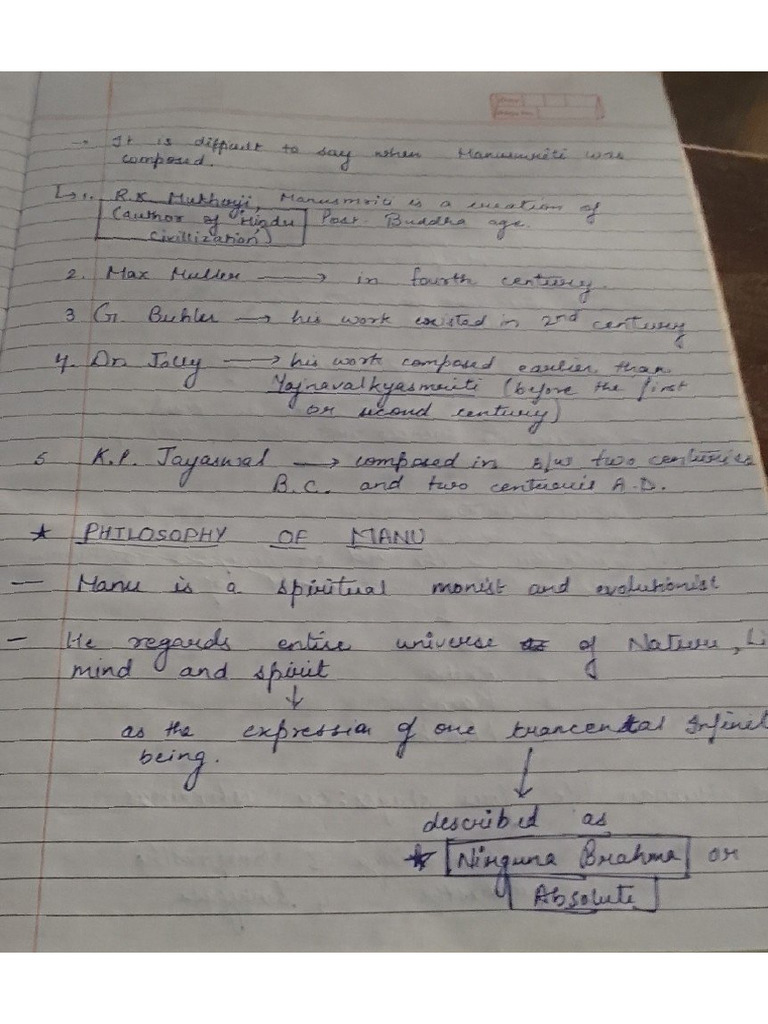 → It is difficult to say when Manusmriti was
composed.
↳ 1. R.K Mukharji, Manusmriti is a creation of
(author of Hindu Post Buddha age.
Civillization)
2. Max Muller → in fourth century.
3 G. Buhler → his work existed in 2nd century
4. Dr. Jolly → his work composed earlier than
Yajnavalkyasmriti (before the first
or second century)
5 K.P. Jayaswal → composed in b/w two centuries
B.C. and two centuries A.D.
* PHILOSOPHY OF MANU
— Manu is a spiritual monist and evolutionist
— He regards entire universe of Nature, Li
mind and spirit
↓
as the expression of one trancental Infinit
being.
↓
described as
* Nirguna Brahma or
Absolute